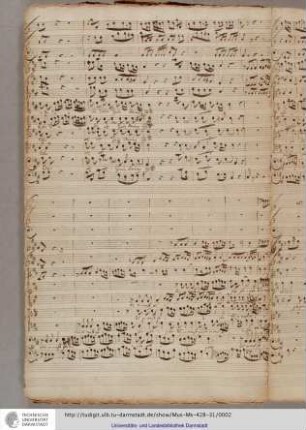 TECHNISCHE
UNIVERSITÄT
DARMSTADT
http://tudigit.ulb.tu-darmstadt.de/show/Mus-Ms-428-31/0002
Universitäts- und Landesbibliothek Darmstadt